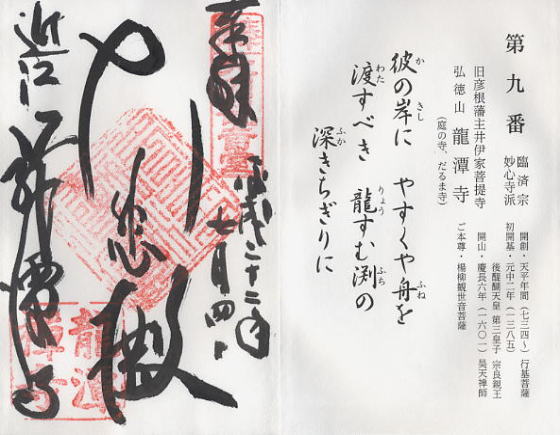 第九番
臨済宗
妙心寺派
旧彦根藩主井伊家菩提寺
弘徳山 龍潭寺
(庭の寺、だるま寺)
開創・天平年間(七三四〜) 行基菩薩
初開基・元中二年(一三八五)
後醍醐天皇 第三皇子 宗良親王
開山・慶長六年(一六〇一) 昊天禅師
ご本尊・楊柳観世音菩薩
彼の岸に やすくや舟を
か きし ふね
渡すべき 龍すむ渕の
わた りょう ふち
深きちぎりに
ふか
奉拝
平成二十二年
七月四日
近江
龍潭寺